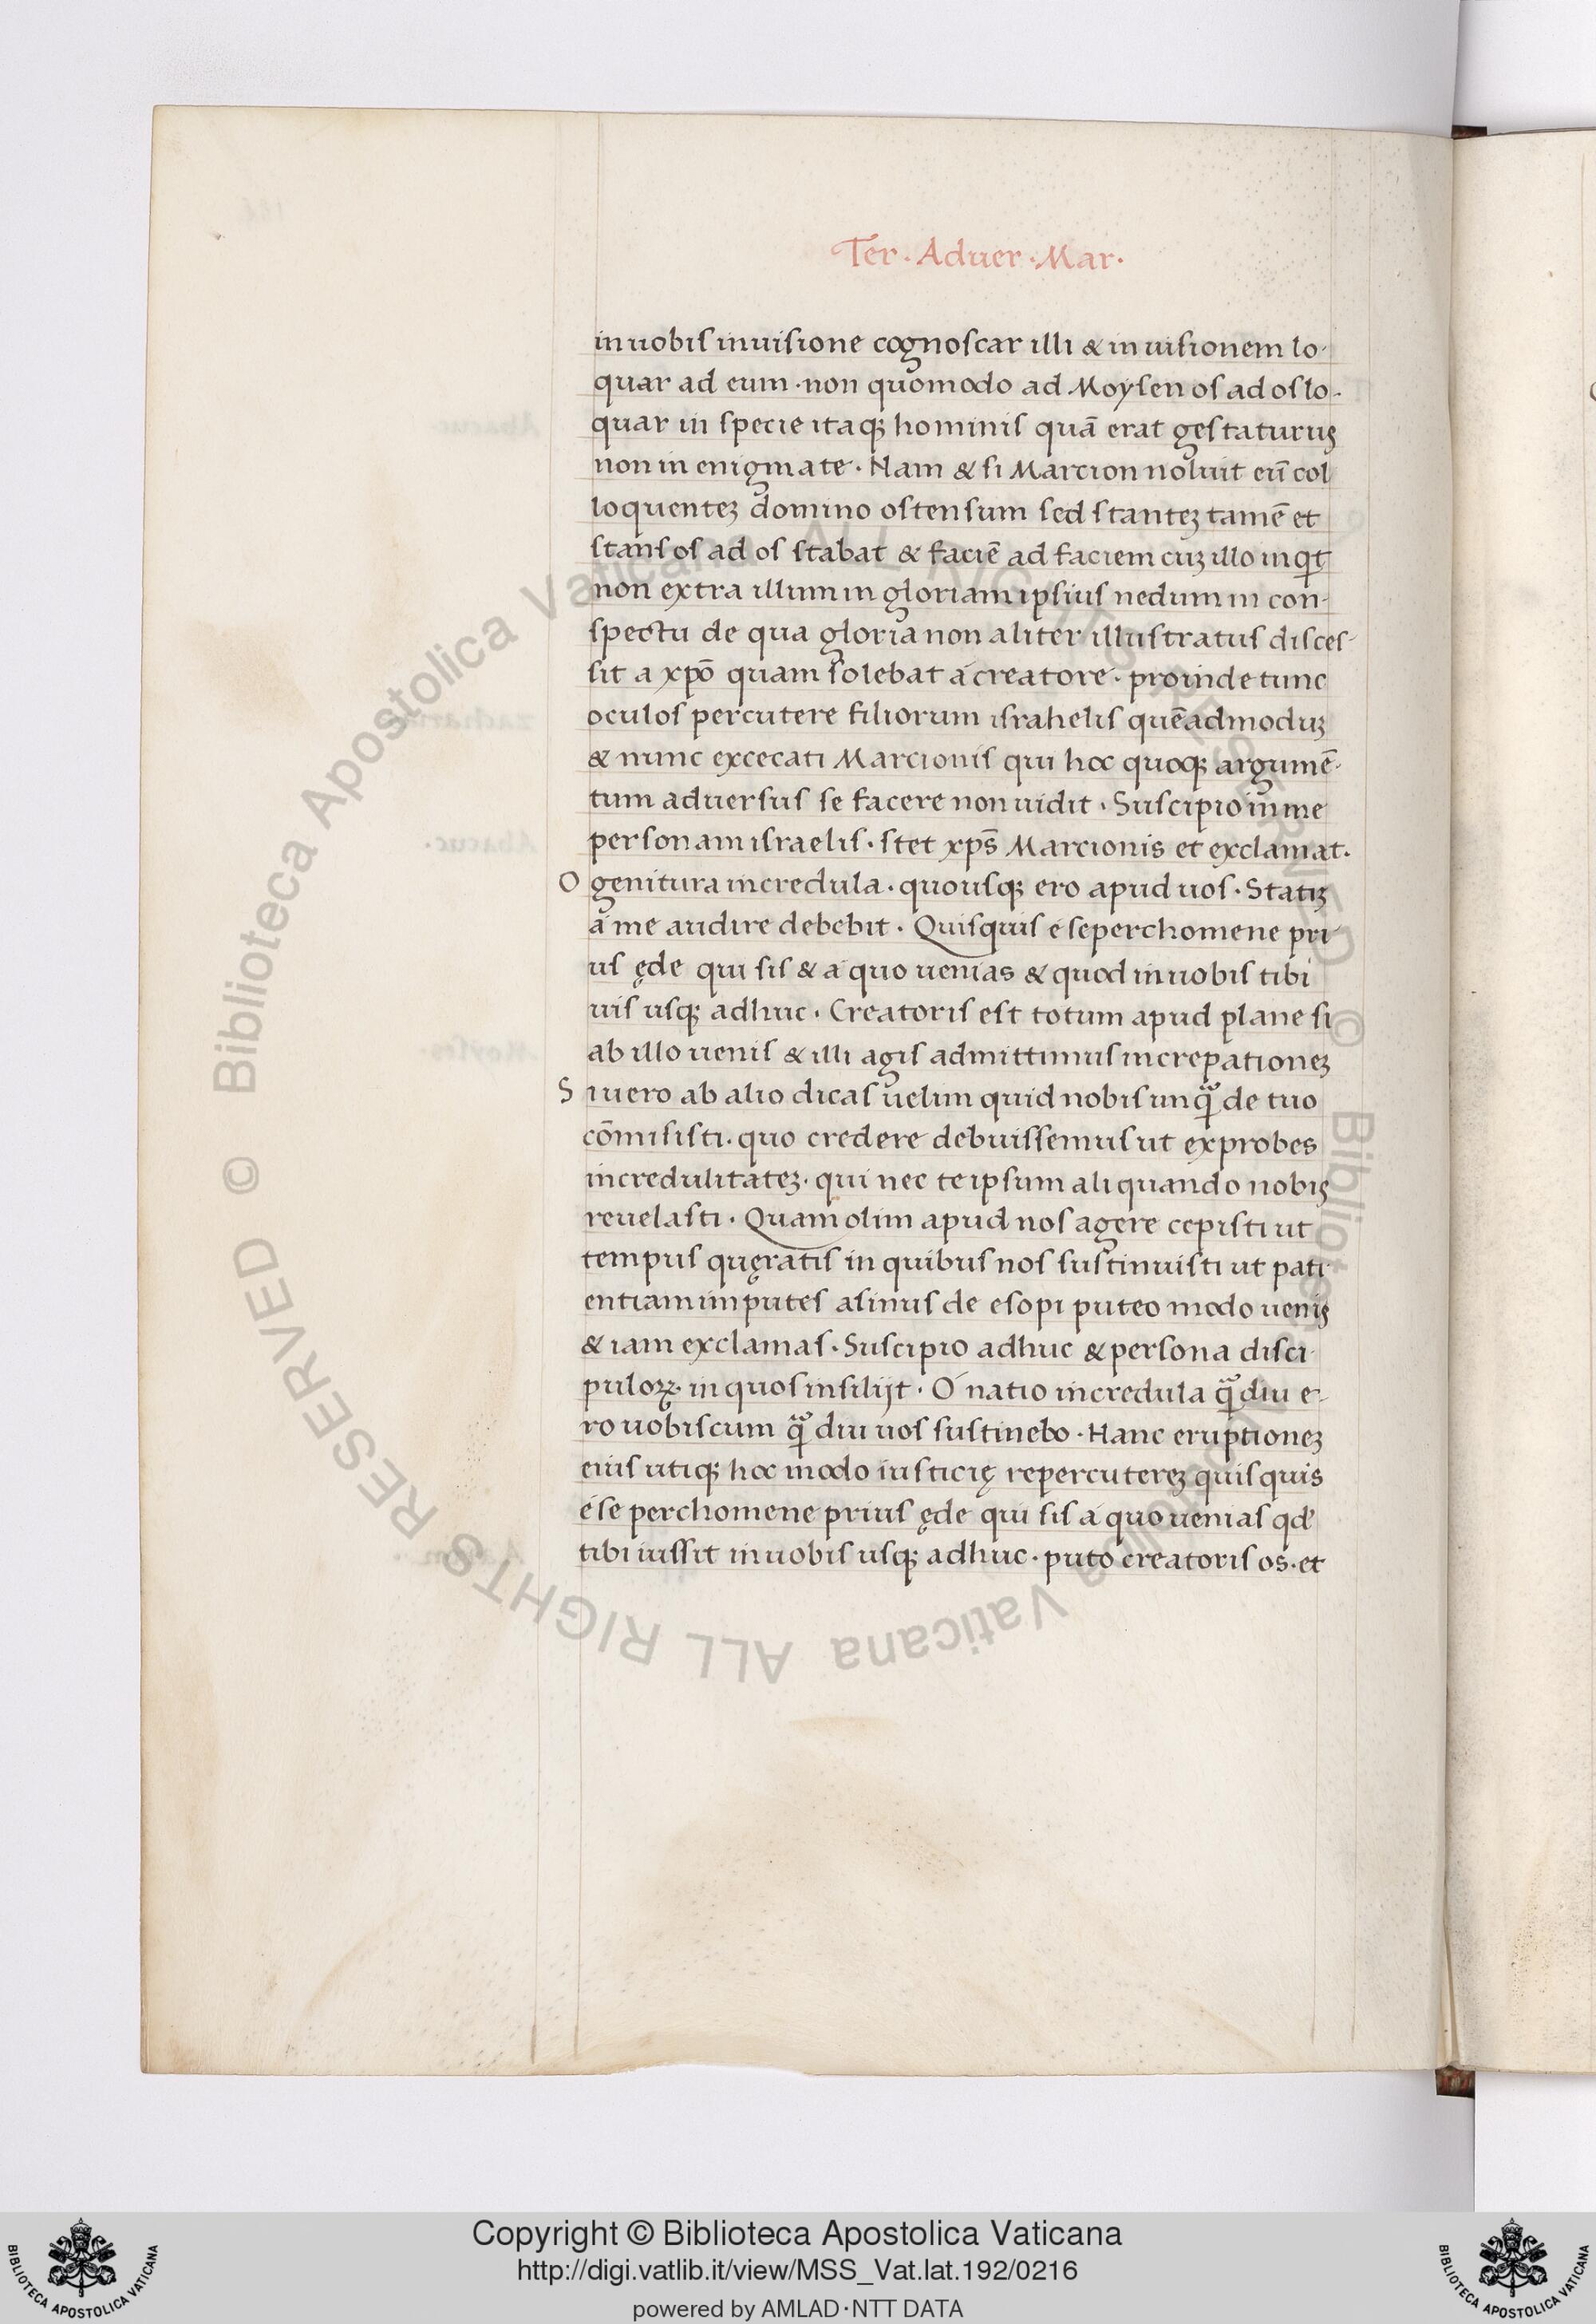 Ter · Aduer · Mar ·
in uobis in uisione cognoscar illi & in uisionem lo-
quar ad eum · non quomodo ad Moysen os ad os lo-
quar in specie itaqꝫ hominis quā erat gestaturus
non in enigmate · Nam & si Marcion noluit eū col
loquenteꝫ domino ostensum sed stanteꝫ tamē et
stans os ad os stabat & faciē ad faciem cuꝫ illo inqͥt
non extra illum in gloriam ipsius nedum in con-
spectu de qua gloria non aliter illustratus disces-
sit a xp̄o quam solebat á creatore · proinde tunc
oculos percutere filiorum israhelis quēadmoduꝫ
& nunc excecati Marcionis qui hoc quoqꝫ argumē-
tum aduersus se facere non uidit · Suscipio in me
personam israelis · stet xp̄s Marcionis et exclamat ·
O genitura incredula · quousqꝫ ero apud uos · Statiꝫ
a me audire debebit · Quisquis é seperchomene pri
us ęde qui sis & a quo uenias & quod in uobis tibi
uis usqꝫ adhuc · Creatoris est totum apud plane si
ab illo uenis & illi agis admittimus increpationeꝫ
S i uero ab alio dicas uelim quid nobis unqᷓ de tuo
cōmisisti · quo credere debuissemus ut exprobes
incredulitateꝫ · qui nec te ipsum aliquando nobis
reuelasti · Quam olim apud nos agere cepisti ut
tempus quęratis in quibus nos sustinuisti ut pati
entiam imputes asinus de esopi puteo modo uenis
& iam exclamas · Suscipio adhuc & persona disci
puloꝝ · in quos insilijt · Ó natio incredula qᷓ diu e-
ro uobiscum qᷓ diu uos sustinebo · Hanc eruptioneꝫ
eius utiqꝫ hoc modo iusticię repercutereꝫ quisquis
é se perchomene prius ęde qui sis á quo uenias qd'
tibi iussit in uobis usqꝫ adhuc · puto creatoris os · et
© Biblioteca Apostolica Vaticana ALL RIGHTS RESERVED © Biblioteca Apostolica Vaticana ALL RIGHTS RESERVED
Copyright © Biblioteca Apostolica Vaticana
http://digi.vatlib.it/view/MSS_Vat.lat.192/0216
powered by AMLAD·NTT DATA
BIBLIOTECA APOSTOLICA VATICANA
BIBLIOTECA APOSTOLICA VATICANA